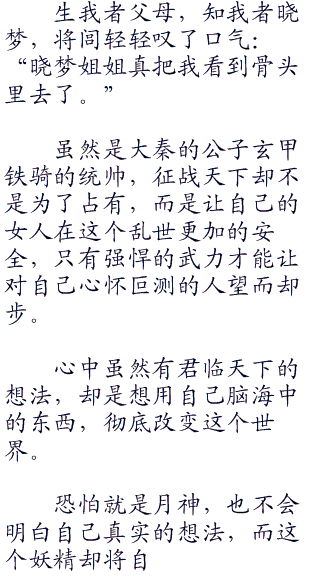 生我者父母，知我者晓
梦，将闾轻轻叹了口气：
“晓梦姐姐真把我看到骨头
里去了。”
虽然是大秦的公子玄甲
铁骑的统帅，征战天下却不
是为了占有，而是让自己的
女人在这个乱世更加的安
全，只有强悍的武力才能让
对自己心怀叵测的人望而却
步。
心中虽然有君临天下的
想法，却是想用自己脑海中
的东西，彻底改变这个世
界。
恐怕就是月神，也不会
明白自己真实的想法，而这
个妖精却将自